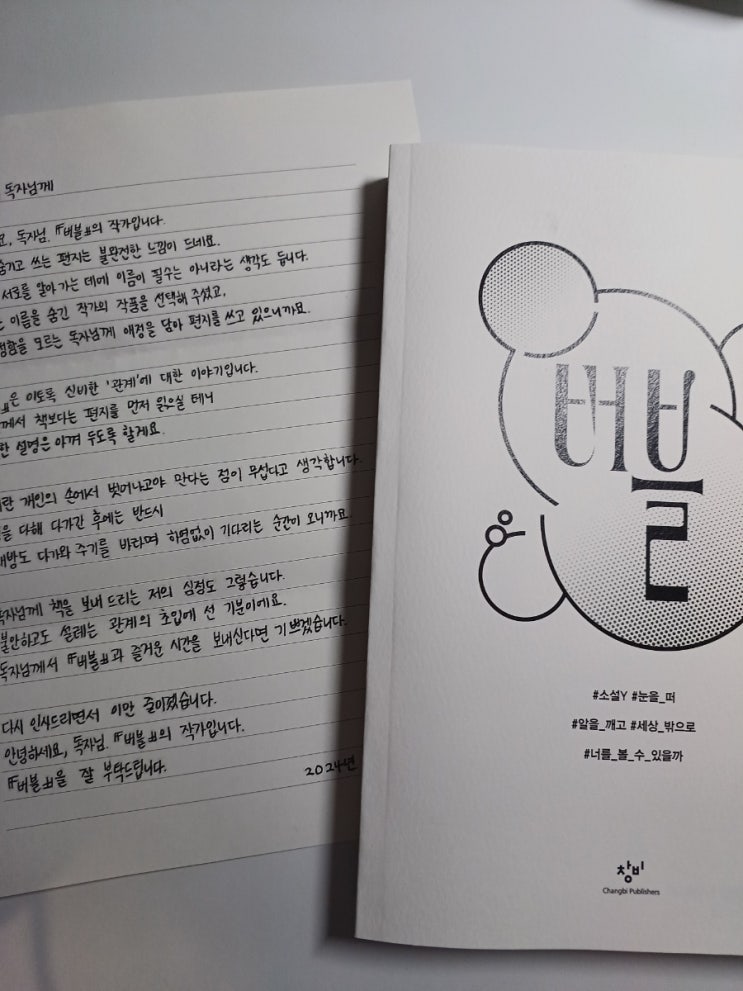 독자님께
요, 독자님. 『버블』의 작가입니다.
숨기고 쓰는 편지는 불완전한 느낌이 드네요.
서로를 알아가는 데에 이름이 필수는 아니라는 생각도 듭니다.
이름을 숨긴 작가의 작품을 선택해 주셨고,
함을 모르는 독자님께 애정을 담아 편지를 쓰고 있으니까요.
』은 이토록 신비한 '관계'에 대한 이야기입니다.
께서 책보다는 편지를 먼저 읽으실 테니
한 설명은 아껴 두도록 할게요.
란 개인의 손에서 벗어나고야 만다는 점이 무섭다고 생각합니다.
을 다해 다가간 후에는 반드시
대방도 다가와 주기를 바라며 하염없이 기다리는 순간이 오니까요.
독자님께 책을 보내 드리는 저의 심정도 그렇습니다.
불안하고도 설레는 관계의 초입에 선 기분이에요.
독자님께서 『버블』과 즐거운 시간을 보내신다면 기쁘겠습니다.
다시 인사드리면서 이만 줄이겠습니다.
안녕하세요, 독자님. 『버블』의 작가입니다.
『버블』을 잘 부탁드립니다.
2024년
버블
#소설Y #눈을_떠
#알을_깨고 #세상_밖으로
#너를_볼_수_있을까
창비
Changbi Publishers